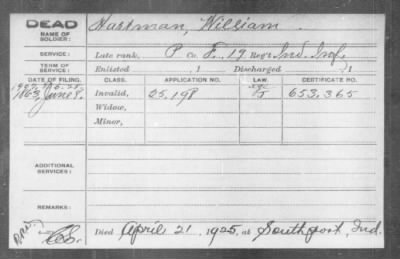 DEAD
NAME OF SOLDIER: Hartman, William
SERVICE: Late rank, P Co. F, 19 Reg't Ind. Inf.
TERM OF SERVICE: Enlisted , 1 Discharged , 1
DATE OF FILING. CLASS. APPLICATION NO. LAW. CERTIFICATE NO.
June 8, Invalid, 25.198 653.365
Widow,
Minor,
ADDITIONAL SERVICES:
REMARKS:
Died April 21, 1925, at Southport, Ind.